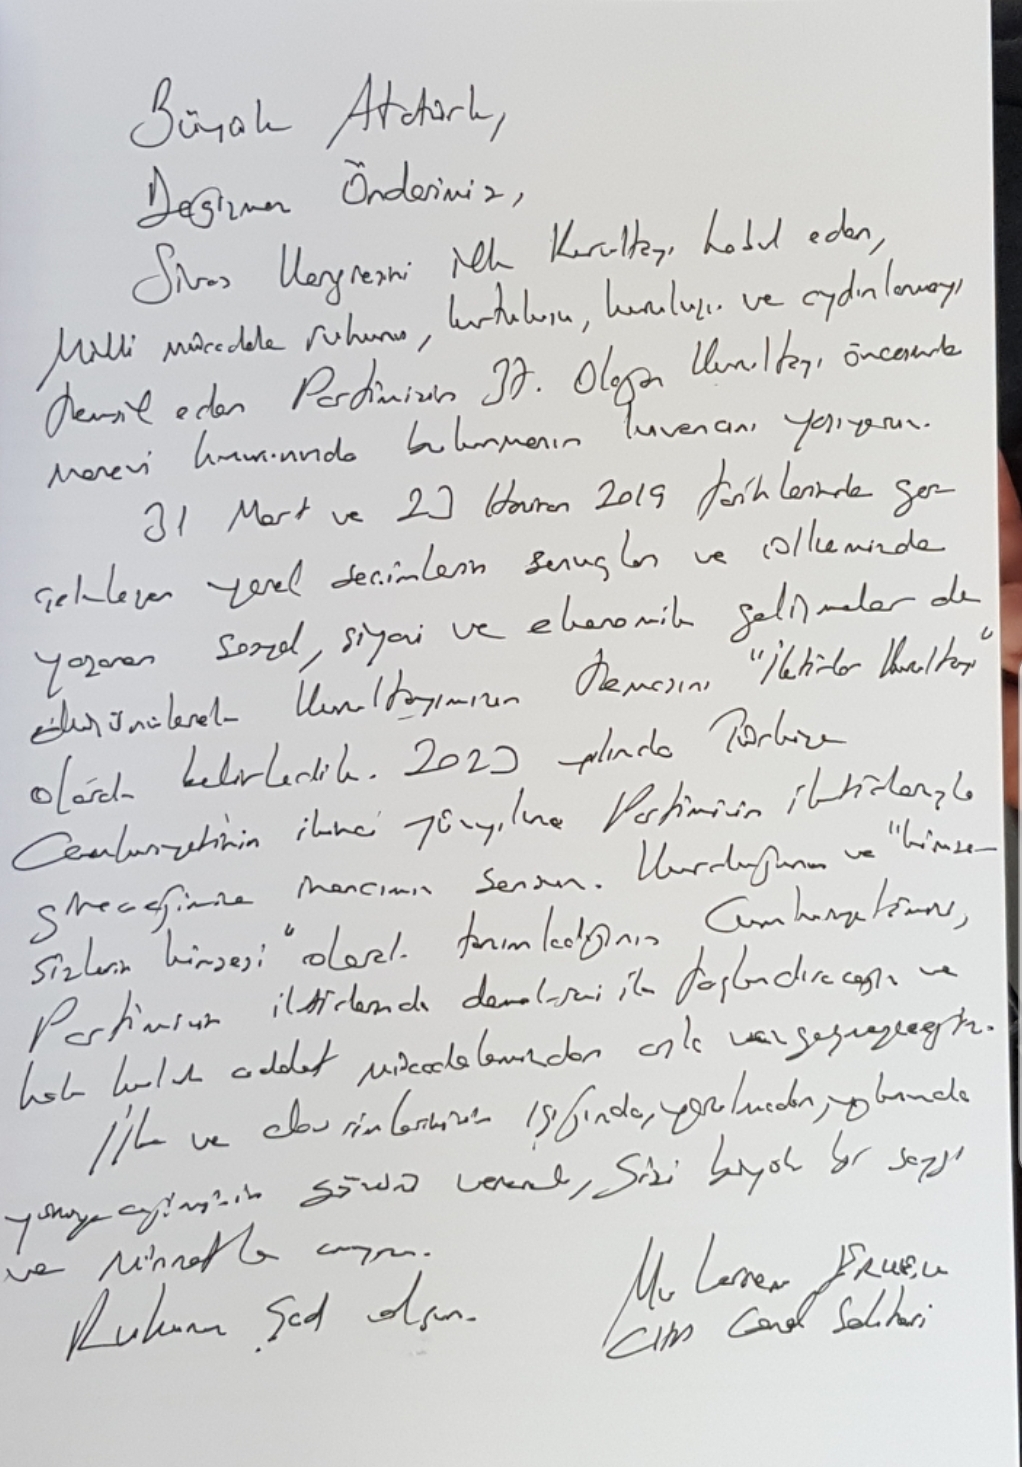 Büyük Atatürk,
Değişmez Önderimiz,
Sivas Kongresini ilk Kurultayı kabul eden,
Milli mücadele ruhunu, kurtuluşu, kuruluşu ve aydınlanmayı
temsil eden Partimizin 37. Olağan Kurultayı öncesinde
manevi huzurunda bulunmanın kıvancını yaşıyoruz.
31 Mart ve 23 Haziran 2019 tarihlerinde ger-
çekleşen yerel seçimlerin sonuçları ve ülkemizde
yaşanan sosyal, siyasi ve ekonomik gelişmeler de
düşünülerek Kurultayımızın temasını "İktidar Kurultayı"
olarak belirledik. 2023 yılında Türkiye
Cumhuriyetinin ikinci yüzyılına Partimizin iktidarıyla
gireceğimize inancımız sonsuz. Kurduğunuz ve "kimse-
sizlerin kimsesi" olarak tanımladığınız Cumhuriyetimizi,
Partimizin iktidarında demokrasi ile taçlandıracağız ve
hak hukuk adalet mücadelemizden asla vazgeçmeyeceğiz.
İlke ve devrimlerinizin ışığında, yorulmadan, yolunuzda
yürüyeceğimizin sözünü vererek, Sizi büyük bir saygı
ve minnetle anıyoruz.
Ruhunuz Şad olsun.
CHP Genel Sekreteri